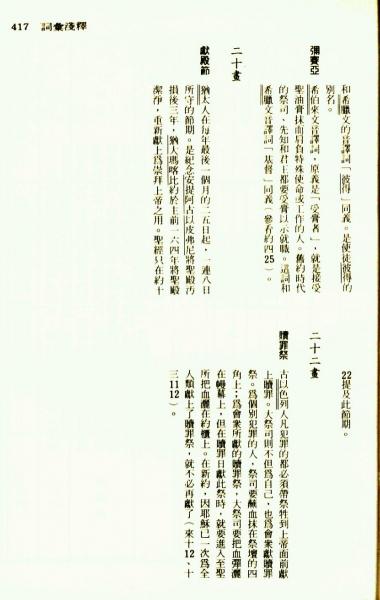 417 詞彙淺釋
和希臘文的音譯詞「彼得」同義。是使徒彼得的
別名。
彌賽亞 希伯來文音譯詞，原義是「受膏者」，就是接受
聖油膏抹而肩負特殊使命或工作的人。舊約時代
的祭司、先知和君王都要受膏以示就職。這詞和
希臘文音譯詞「基督」同義（參看約四25）。
二十畫
獻殿節 猶太人在每年最後一個月的二五日起，一連八日
所守的節期。是紀念安提阿古以皮弗尼將聖殿汚
損後三年，猶大瑪喀比約於主前一六四年將聖殿
潔淨，重新獻上爲崇拜上帝之用。聖經只在約十
22提及此節期。
二十二畫
贖罪祭 古以色列人凡犯罪的都必須帶祭牲到上帝面前獻
上贖罪。大祭司則不但爲自己，也爲會衆獻贖罪
祭。爲個別犯罪的人，祭司要蘸血抹在祭壇的四
角上；爲會衆所獻的贖罪祭，大祭司要把血彈灑
在幔幕上，但在贖罪日獻此祭時，就要進入至聖
所把血灑在約櫃上。在新約，因耶穌已一次爲全
人類獻上了贖罪祭，就不必再獻了（來十12、十
三11 12）。